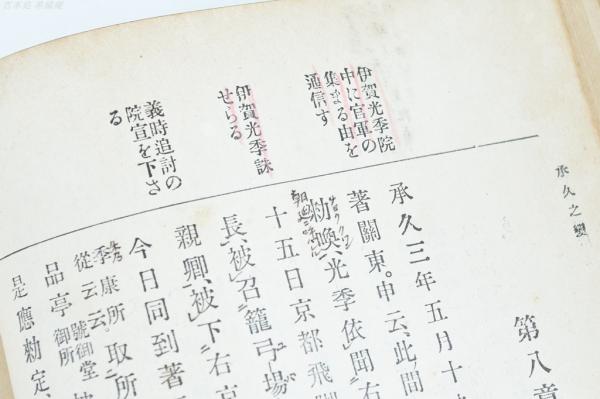 承久之變
第八章
伊賀光季院
中に官軍の
集まる由を
通信す
伊賀光季誅
せらる
義時追討の
院宣を下さ
る
承久三年五月十
著關東。申云、此間
勅喚、光季依聞右
十五日京都飛脚
長、被召籠弓場
親卿、被下右京
今日同到著
季康所取所
從云云。號御堂
品亭御所
是應勅定、